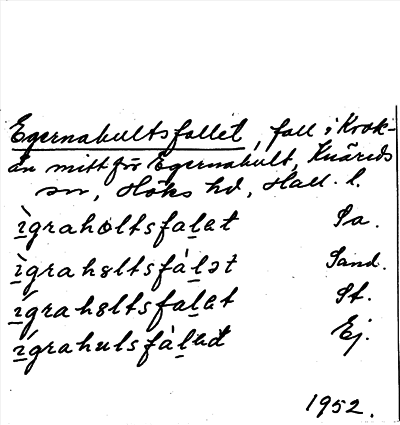 Egernahultsfallet, fall i Krok-
ån mitt för Egernahult, Knäreds
sn, Höks hd, Hall. l.
ìgraholtsfalat Sa.
ìgrahɤltsfàlət Sand.
ígrahɤltsfalat St.
ígrahulsfàlad Ej.
1952.